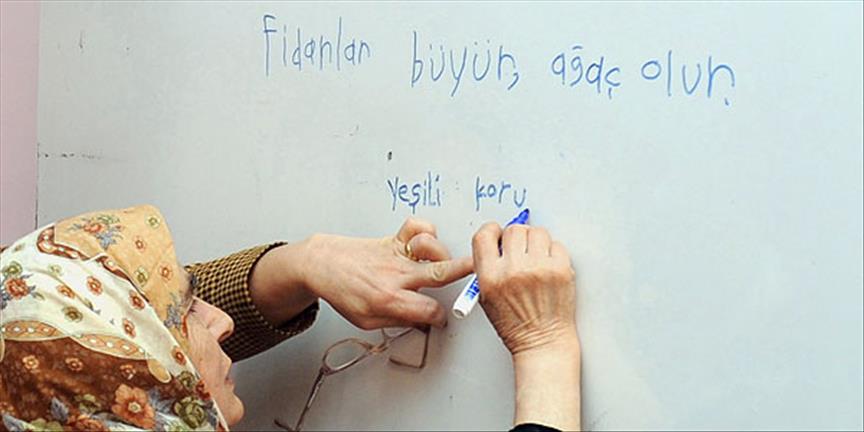 Fidanlar büyür, ağaç olur.
yeşili koru